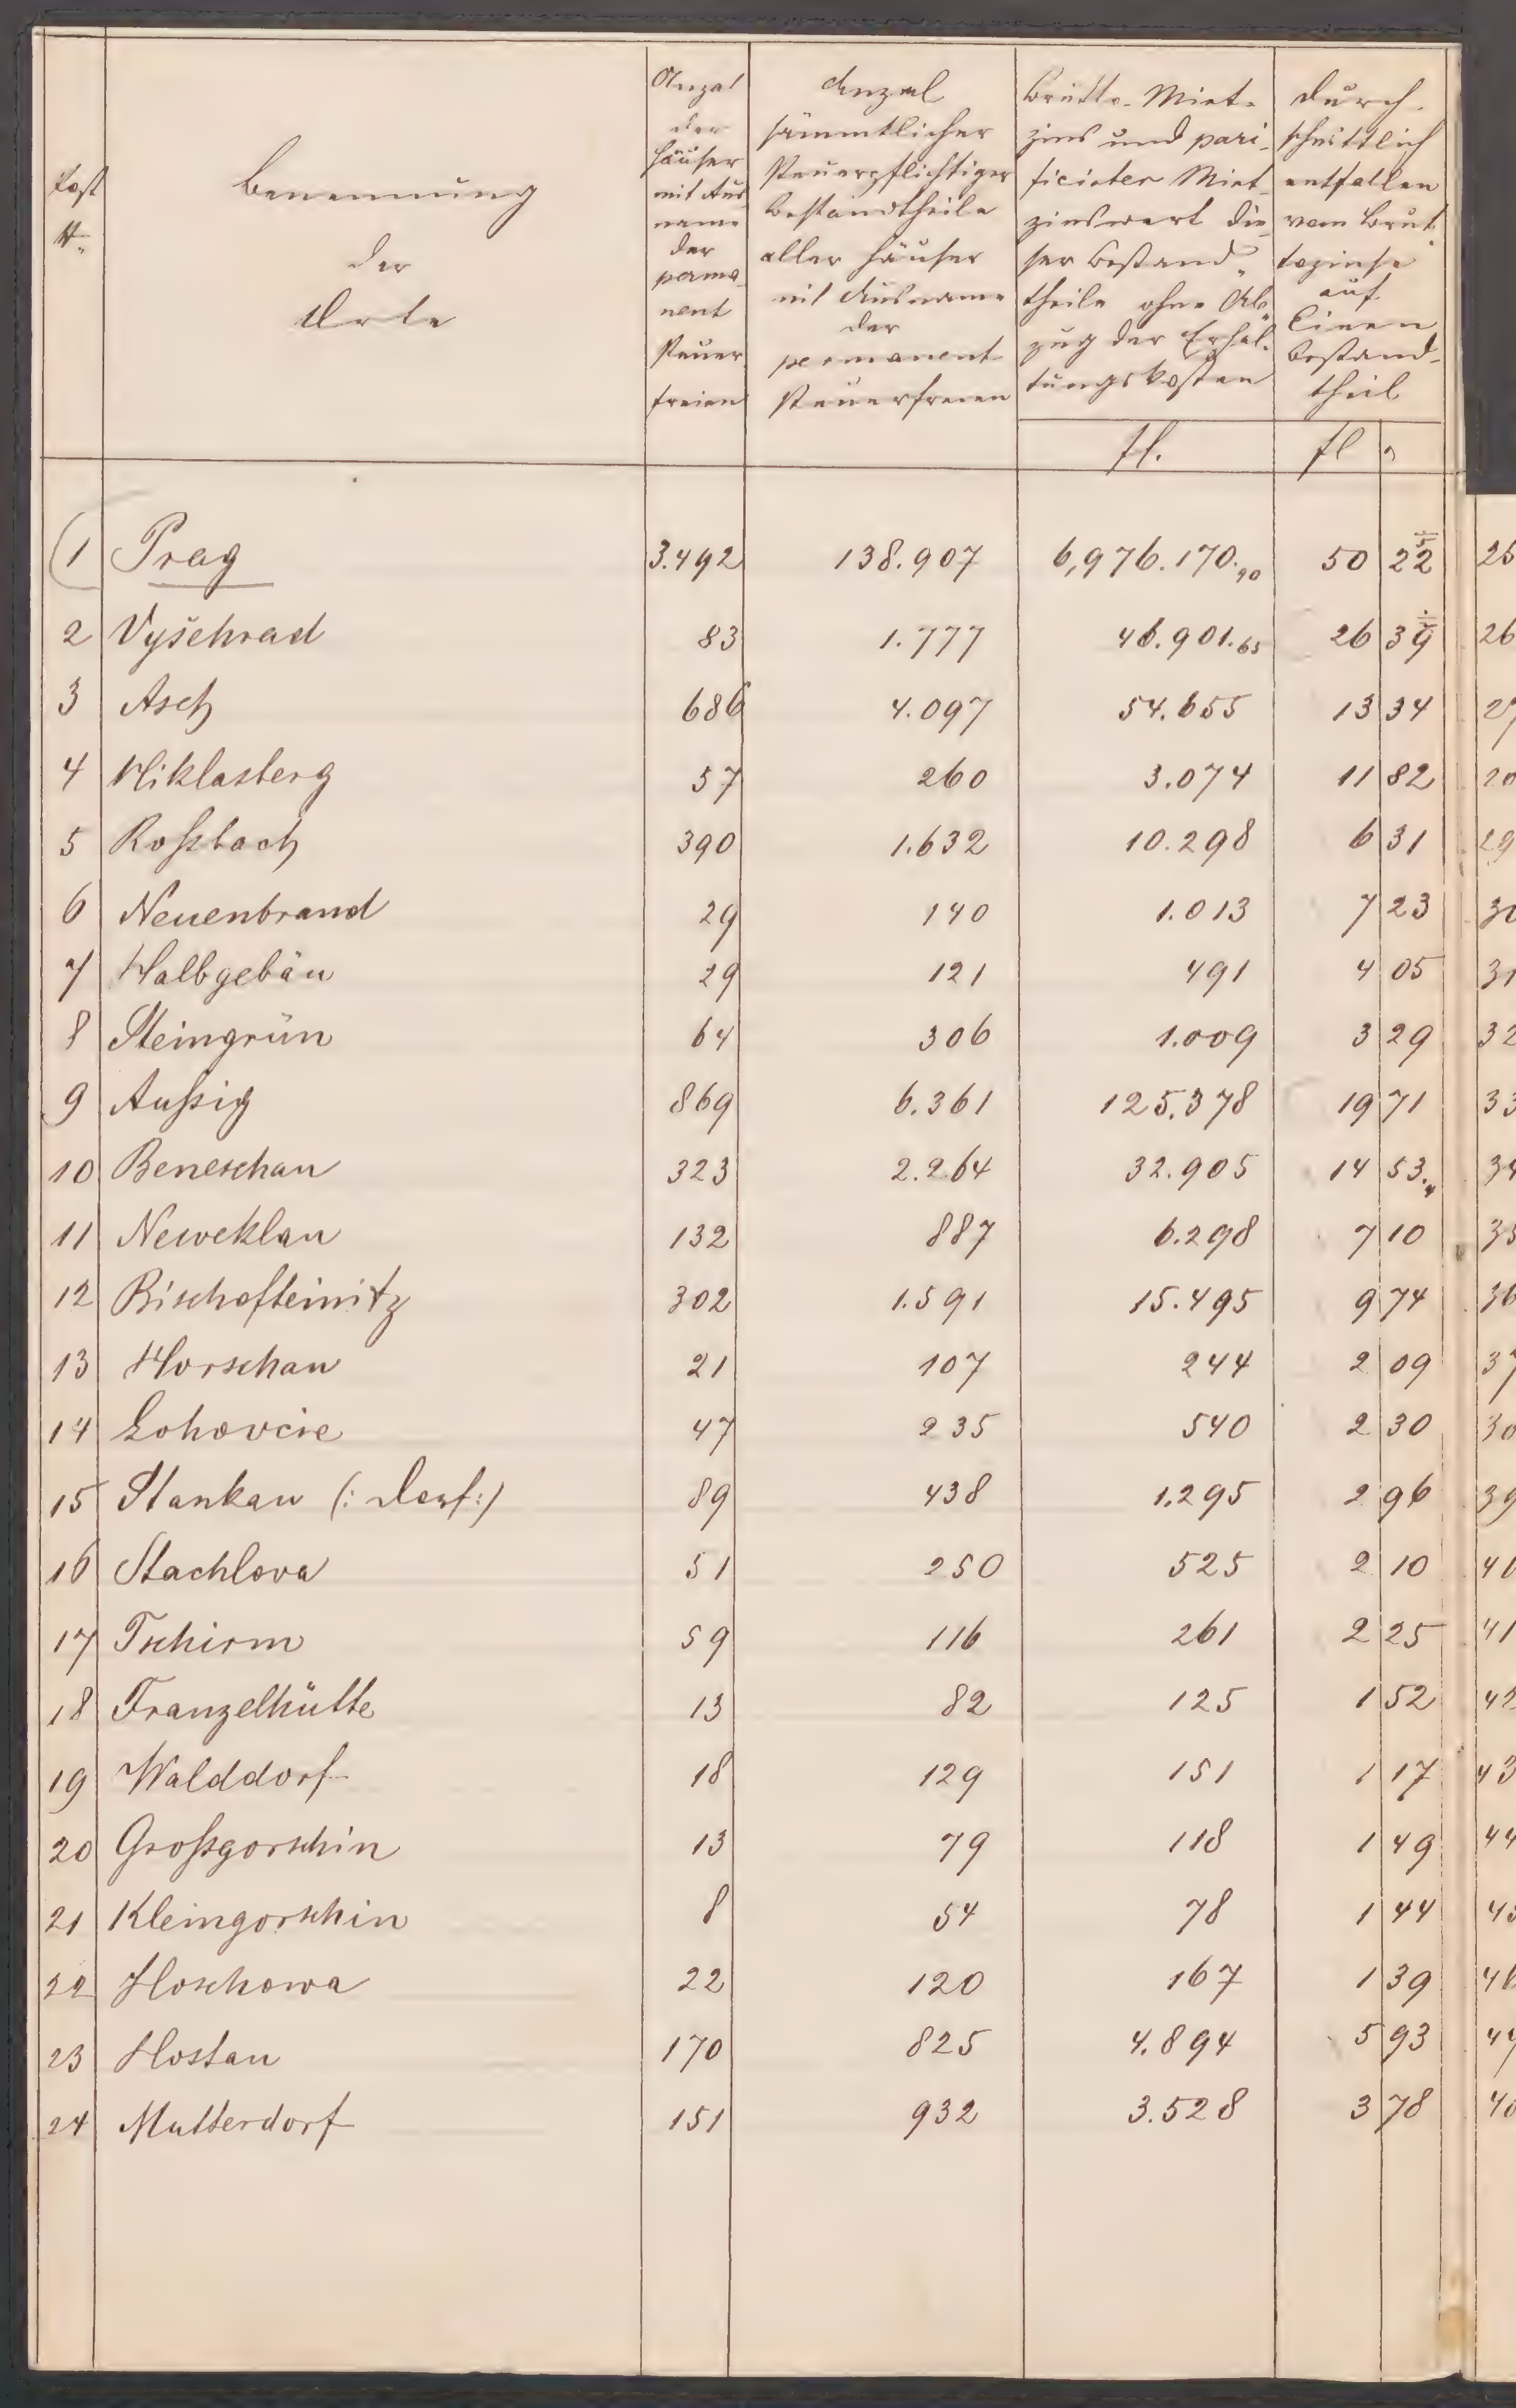 Post
N.
Benennung
der
Orte
Anzal
der
Häuser
mit Aus
name
der
perma-
nent
steuer
freien
Anzal
sämmtlicher
steuerpflichtiger
Bestandtheile
aller Häuser
mit Ausname
der
permanent
steuerfreien
Brutto-Miet-
zins und pari-
ficirter Miet-
zinswert die-
ser Bestand-
theile ohne Ab-
zug der Erhal-
tungskosten
Durch-
schnittlich
entfallen
vom Brut-
tozinse
auf
Einen
Bestand-
theil
fl.
fl
1 Prag 3.492 138.907 6,976.170.90 50 22
2 Vyšehrad 83 1.777 46.901.65 26 39
3 Asch 686 4.097 54.655 13 34
4 Niklasberg 57 260 3.074 11 82
5 Roßbach 390 1.632 10.298 6 31
6 Neuenbrand 29 140 1.013 7 23
7 Halbgebäu 29 121 491 4 05
8 Steingrün 64 306 1.009 3 29
9 Außig 869 6.361 125.378 19 71
10 Beneschau 323 2.264 32.905 14 53.4
11 Neweklau 132 887 6.298 7 10
12 Bischofteinitz 302 1.591 15.495 9 74
13 Horschau 21 107 244 2 09
14 Lohovcie 47 235 540 2 30
15 Stankau (: Dorf :) 89 438 1.295 2 96
16 Stachlova 51 250 525 2 10
17 Tschirm 59 116 261 2 25
18 Franzelhütte 13 82 125 1 52
19 Walddorf 18 129 151 1 17
20 Großgorschin 13 79 118 1 49
21 Kleingorschin 8 54 78 1 44
22 Hoschowa 22 120 167 1 39
23 Hostau 170 825 4.894 5 93
24 Mutterdorf 151 932 3.528 3 78
26
29
31
32
33
36
39
41
42
43
44